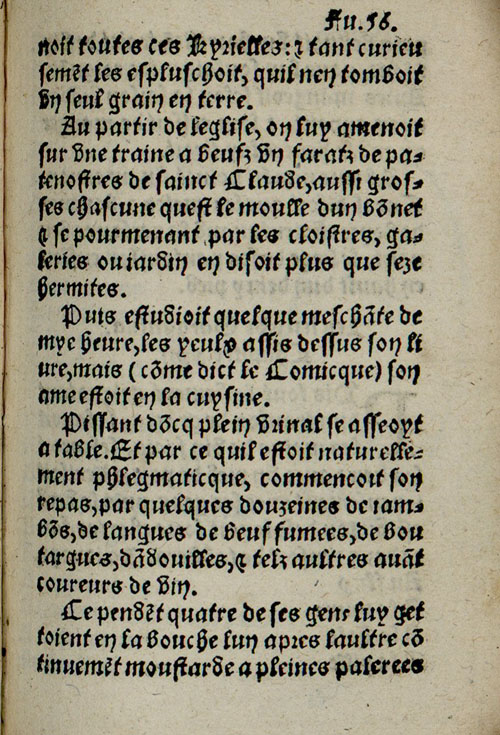 Fu.56.
noit toutes ces Kyrielles: ⁊ tant curieu
semẽt les espluschoit, quil nen tomboit
vn seul grain en terre.
Au partir de leglise, on luy amenoit
sur vne traine a beufz vn faratz de pa-
tenostres de sainct Claude, aussi gros-
ses chascune quest le moulle dun bõnet
⁊ se pourmenant par les cloistres, ga-
leries ou iardin en disoit plus que seze
hermites.
Puis estudioit quelque meschãte de
mye heure, les yeulx assis dessus son li
ure, mais (cõme dict le Comicque) son
ame estoit en la cuysine.
Pissant dõcq plein vrinal se asseoyt
a table. Et par ce quil estoit naturelle-
ment phlegmaticque, commencoit son
repas, par quelques douzeines de iam-
bõs, de langues de beuf fumees, de bou
targues, dãdouilles, ⁊ telz aultres auãt
coureurs de vin.
Ce pendẽt quatre de ses gens luy get
toient en la bouche lun apres laultre cõ
tinuemẽt moustarde a pleines palerees